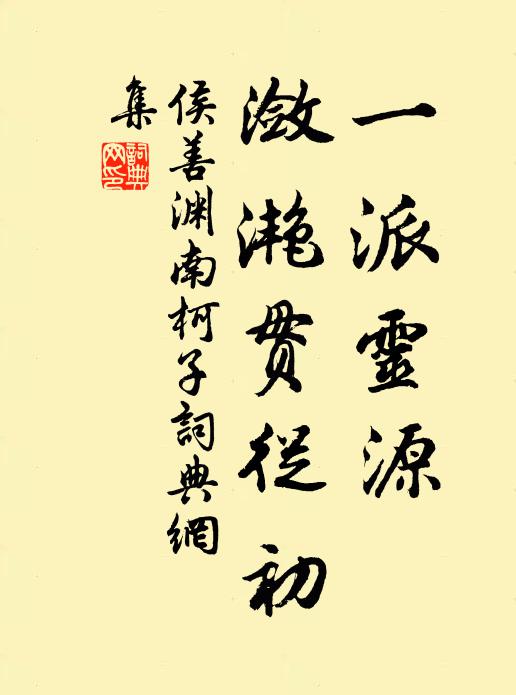 一派靈源
瀲灩貫從初
侯善渊南柯子詞典網
集
詞典網印